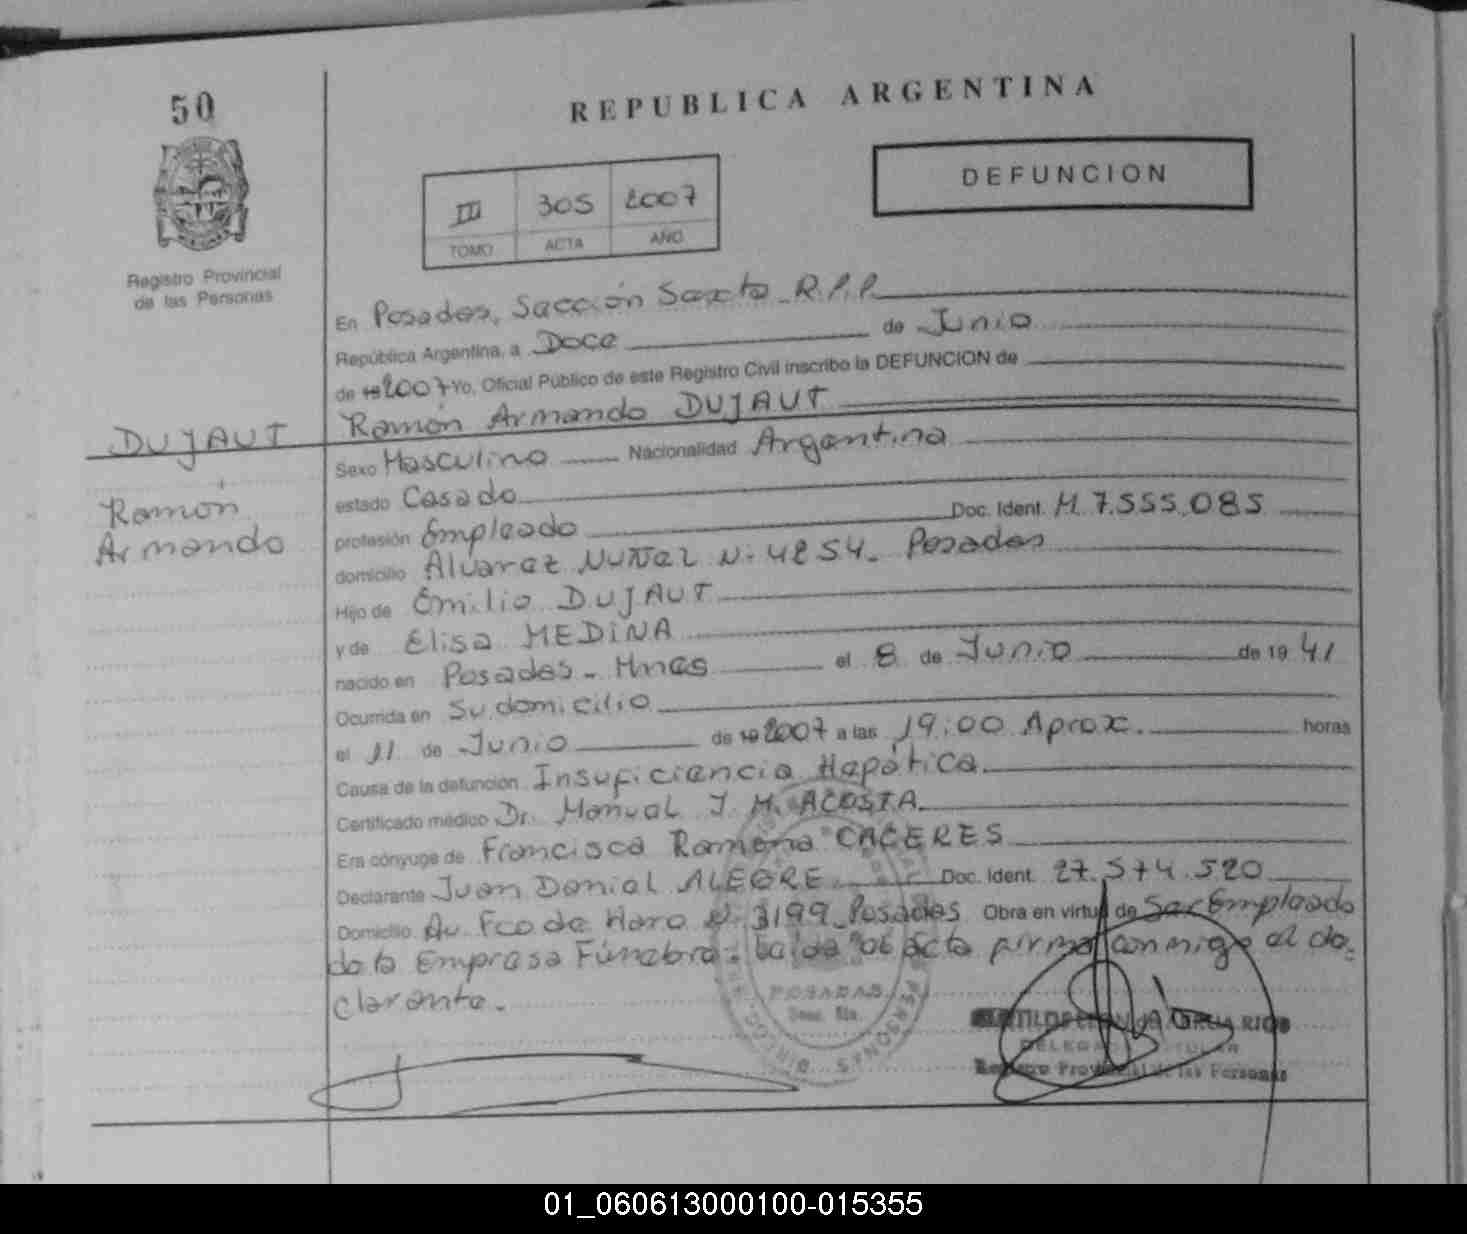 50
REPUBLICA ARGENTINA
DEFUNCION
III 305 2007
TOMO ACTA AÑO
Registro Provincial
de las Personas
En Posadas, Sección Sexta R.P.P.
República Argentina, a Doce de Junio
de 19 2007 Yo, Oficial Público de este Registro Civil inscribo la DEFUNCION de
Ramón Armando DUJAUT
DUJAUT
Ramón
Armando
Sexo Masculino Nacionalidad Argentina
estado Casado
profesión Empleado Doc. Ident. M. 7.555.085
domicilio Alvarez NUÑEZ N: 4254. Posadas
Hijo de Emilio DUJAUT
y de Elisa MEDINA
nacido en Posadas - Mnes el 8 de Junio de 19 41
Ocurrida en Su domicilio
el 11 de Junio de 19 2007 a las 19:00 Aprox. horas
Causa de la defunción Insuficiencia Hepática
Certificado médico Dr. Manuel J. M. ACOSTA
Era cónyuge de Francisca Ramona CACERES
Declarante Juan Daniel ALEGRE Doc. Ident. 27.574.520
Domicilio Av. Fco de Haro N: 3199 Posadas Obra en virtud de Ser Empleado
de la Empresa Fúnebre. Leída el acta firma conmigo el de-
clarante.
POSADAS
Secc. 6ta.
RIOS
DELEGADA TITULAR
Registro Provincial de las Personas
01_060613000100-015355